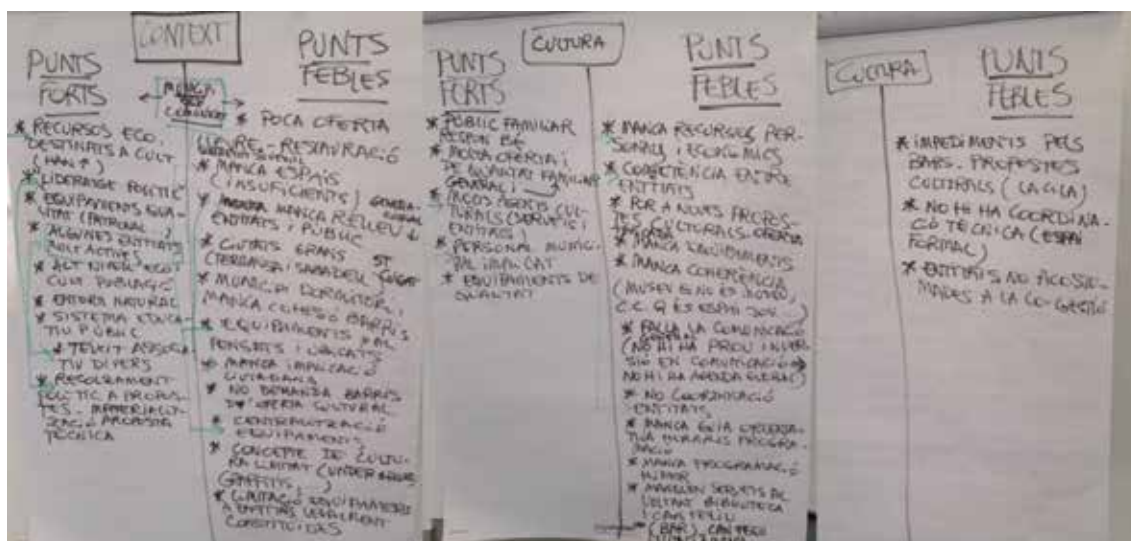 CONTEXT
PUNTS
FORTS
* RECURSOS ECO.
DESTINATS A CULT
(HAN ↑)
* LIDERATGE POLÍTIC
* EQUIPAMENTS QUA-
LITAT (PATRONAL,
* ALGUNES ENTITATS
MOLT ACTIVES)
* ALT NIVELL ECO I
CULT POBLACIÓ
* ENTORN NATURAL
* SISTEMA EDUCA-
TIU PÚBLIC
* TEIXIT ASSOCIA
TIU DIVERS
* RECOLZAMENT
POLÍTIC A PROPOS-
TES. MATERIALIT-
ZACIÓ PROPOSTA
TÈCNICA
PUNTS
FEBLES
* POCA OFERTA
LLEURE - RESTAURACIÓ
* MANCA ESPAIS
(INSUFICIENTS)
* MANCA RELLEU
ENTITATS I PÚBLIC
* CIUTATS GRANS
(TERRASSA, SABADELL, ST CUGAT
* MUNICIPI DORMITORI,
MANCA COHESIÓ BARRIS
* EQUIPAMENTS MAL
PENSATS I UBICATS
* MANCA IMPLICACIÓ
CIUTADANA
* NO DEMANDA BARRIS
D'OFERTA CULTURAL
* CENTRALITZACIÓ
EQUIPAMENTS
* CONCEPTE DE CULTU-
RA LIMITAT (UNDER
GRAFFITIS, ...)
* LIMITACIÓ EQUIPAMENTS
A ENTITATS LEGALMENT
CONSTITUÏDES
CULTURA
PUNTS
FORTS
* PÚBLIC FAMILIAR
RESPON BÉ
* MOLTA OFERTA I
DE QUALITAT FAMILIAR
GENERAL I
AGENTS CUL-
TURALS (SERVEIS I
ENTITATS)
* PERSONAL MUNICI-
PAL IMPLICAT
* EQUIPAMENTS DE
QUALITAT
PUNTS
FEBLES
* MANCA RECURSOS PER-
SONALS I ECONÒMICS
* COMPETÈNCIA ENTRE
ENTITATS
* POR A NOVES PROPOS-
TES CULTURALS
* MANCA EQUIPAMENTS
* MANCA COHERÈNCIA
(MUSEU ES NO ÉS MUSEU,
C.C. Q ÉS ESPAI JOV...)
* FALLA LA COMUNICACIÓ
(NO HI HA PROU INVER-
SIÓ EN COMUNICACIÓ →
NO HI HA AGENDA GLOBAL)
* NO COORDINACIÓ
ENTITATS
* MANCA GUIA
HORARIS PROGRA-
MACIÓ
* MANCA PROGRAMACIÓ
HUMOR
* MANQUEN SERVEIS AL
VOLTANT BIBLIOTECA
I CASTELL
(BAR)
CULTURA
PUNTS
FEBLES
* IMPEDIMENTS PELS
BARS. PROPOSTES
CULTURALS (LA GILA)
* NO HI HA COORDINA-
CIÓ TÈCNICA (ESPAI
FORMAL)
* ENTITATS NO ACOSTU-
MADES A LA CO-GESTIÓ